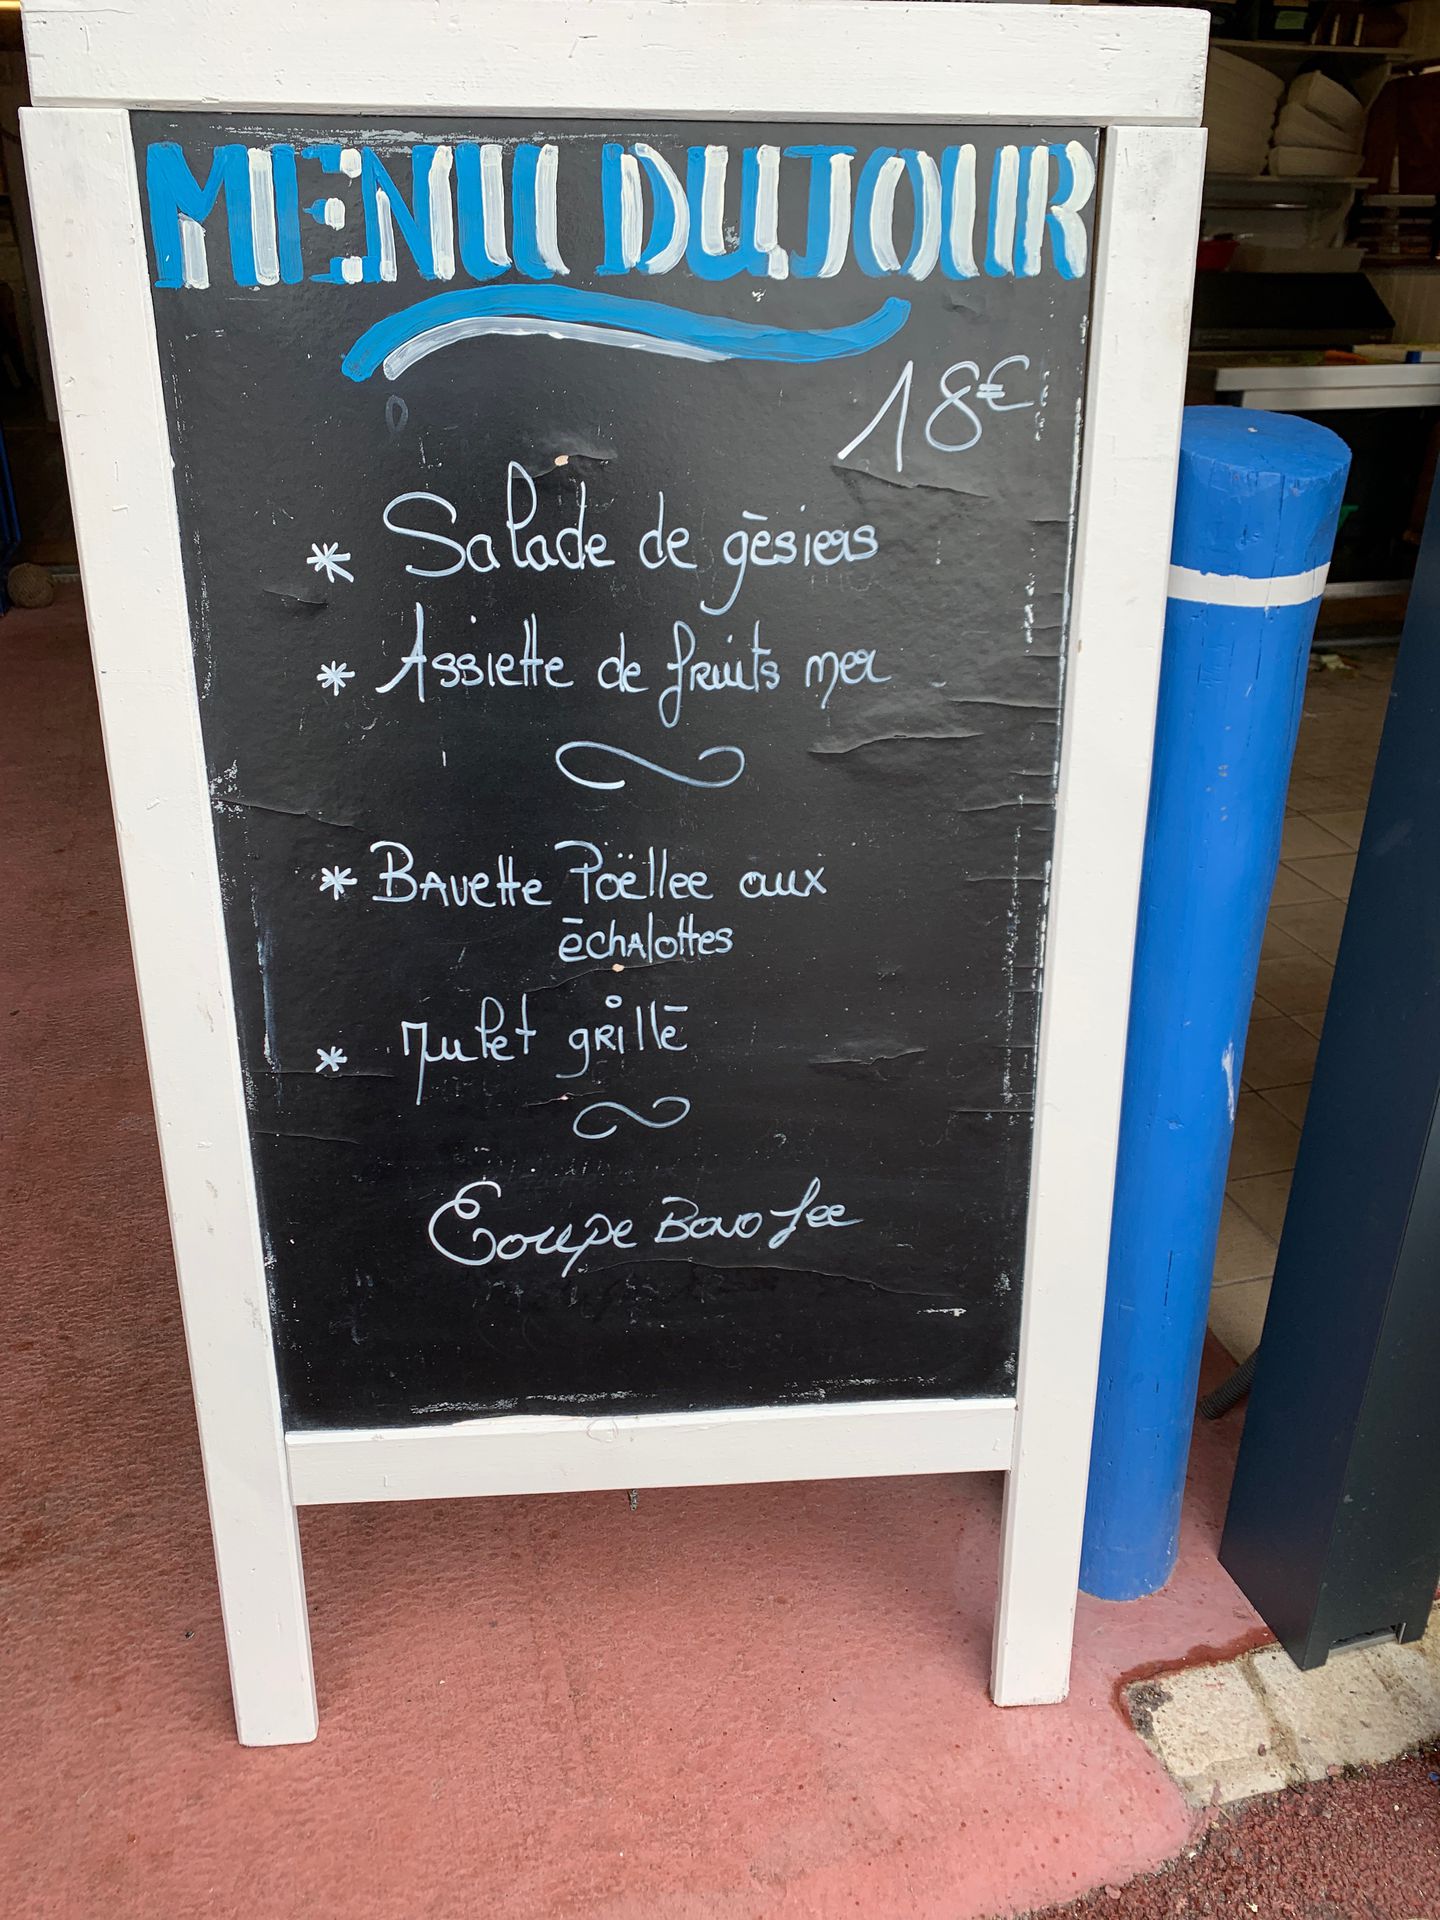 MENU DU JOUR
18€
* Salade de gésiers
* Assiette de fruits mer
* Bavette Poëllee aux
échalottes
* Mulet grillé
Coupe Bono Lee